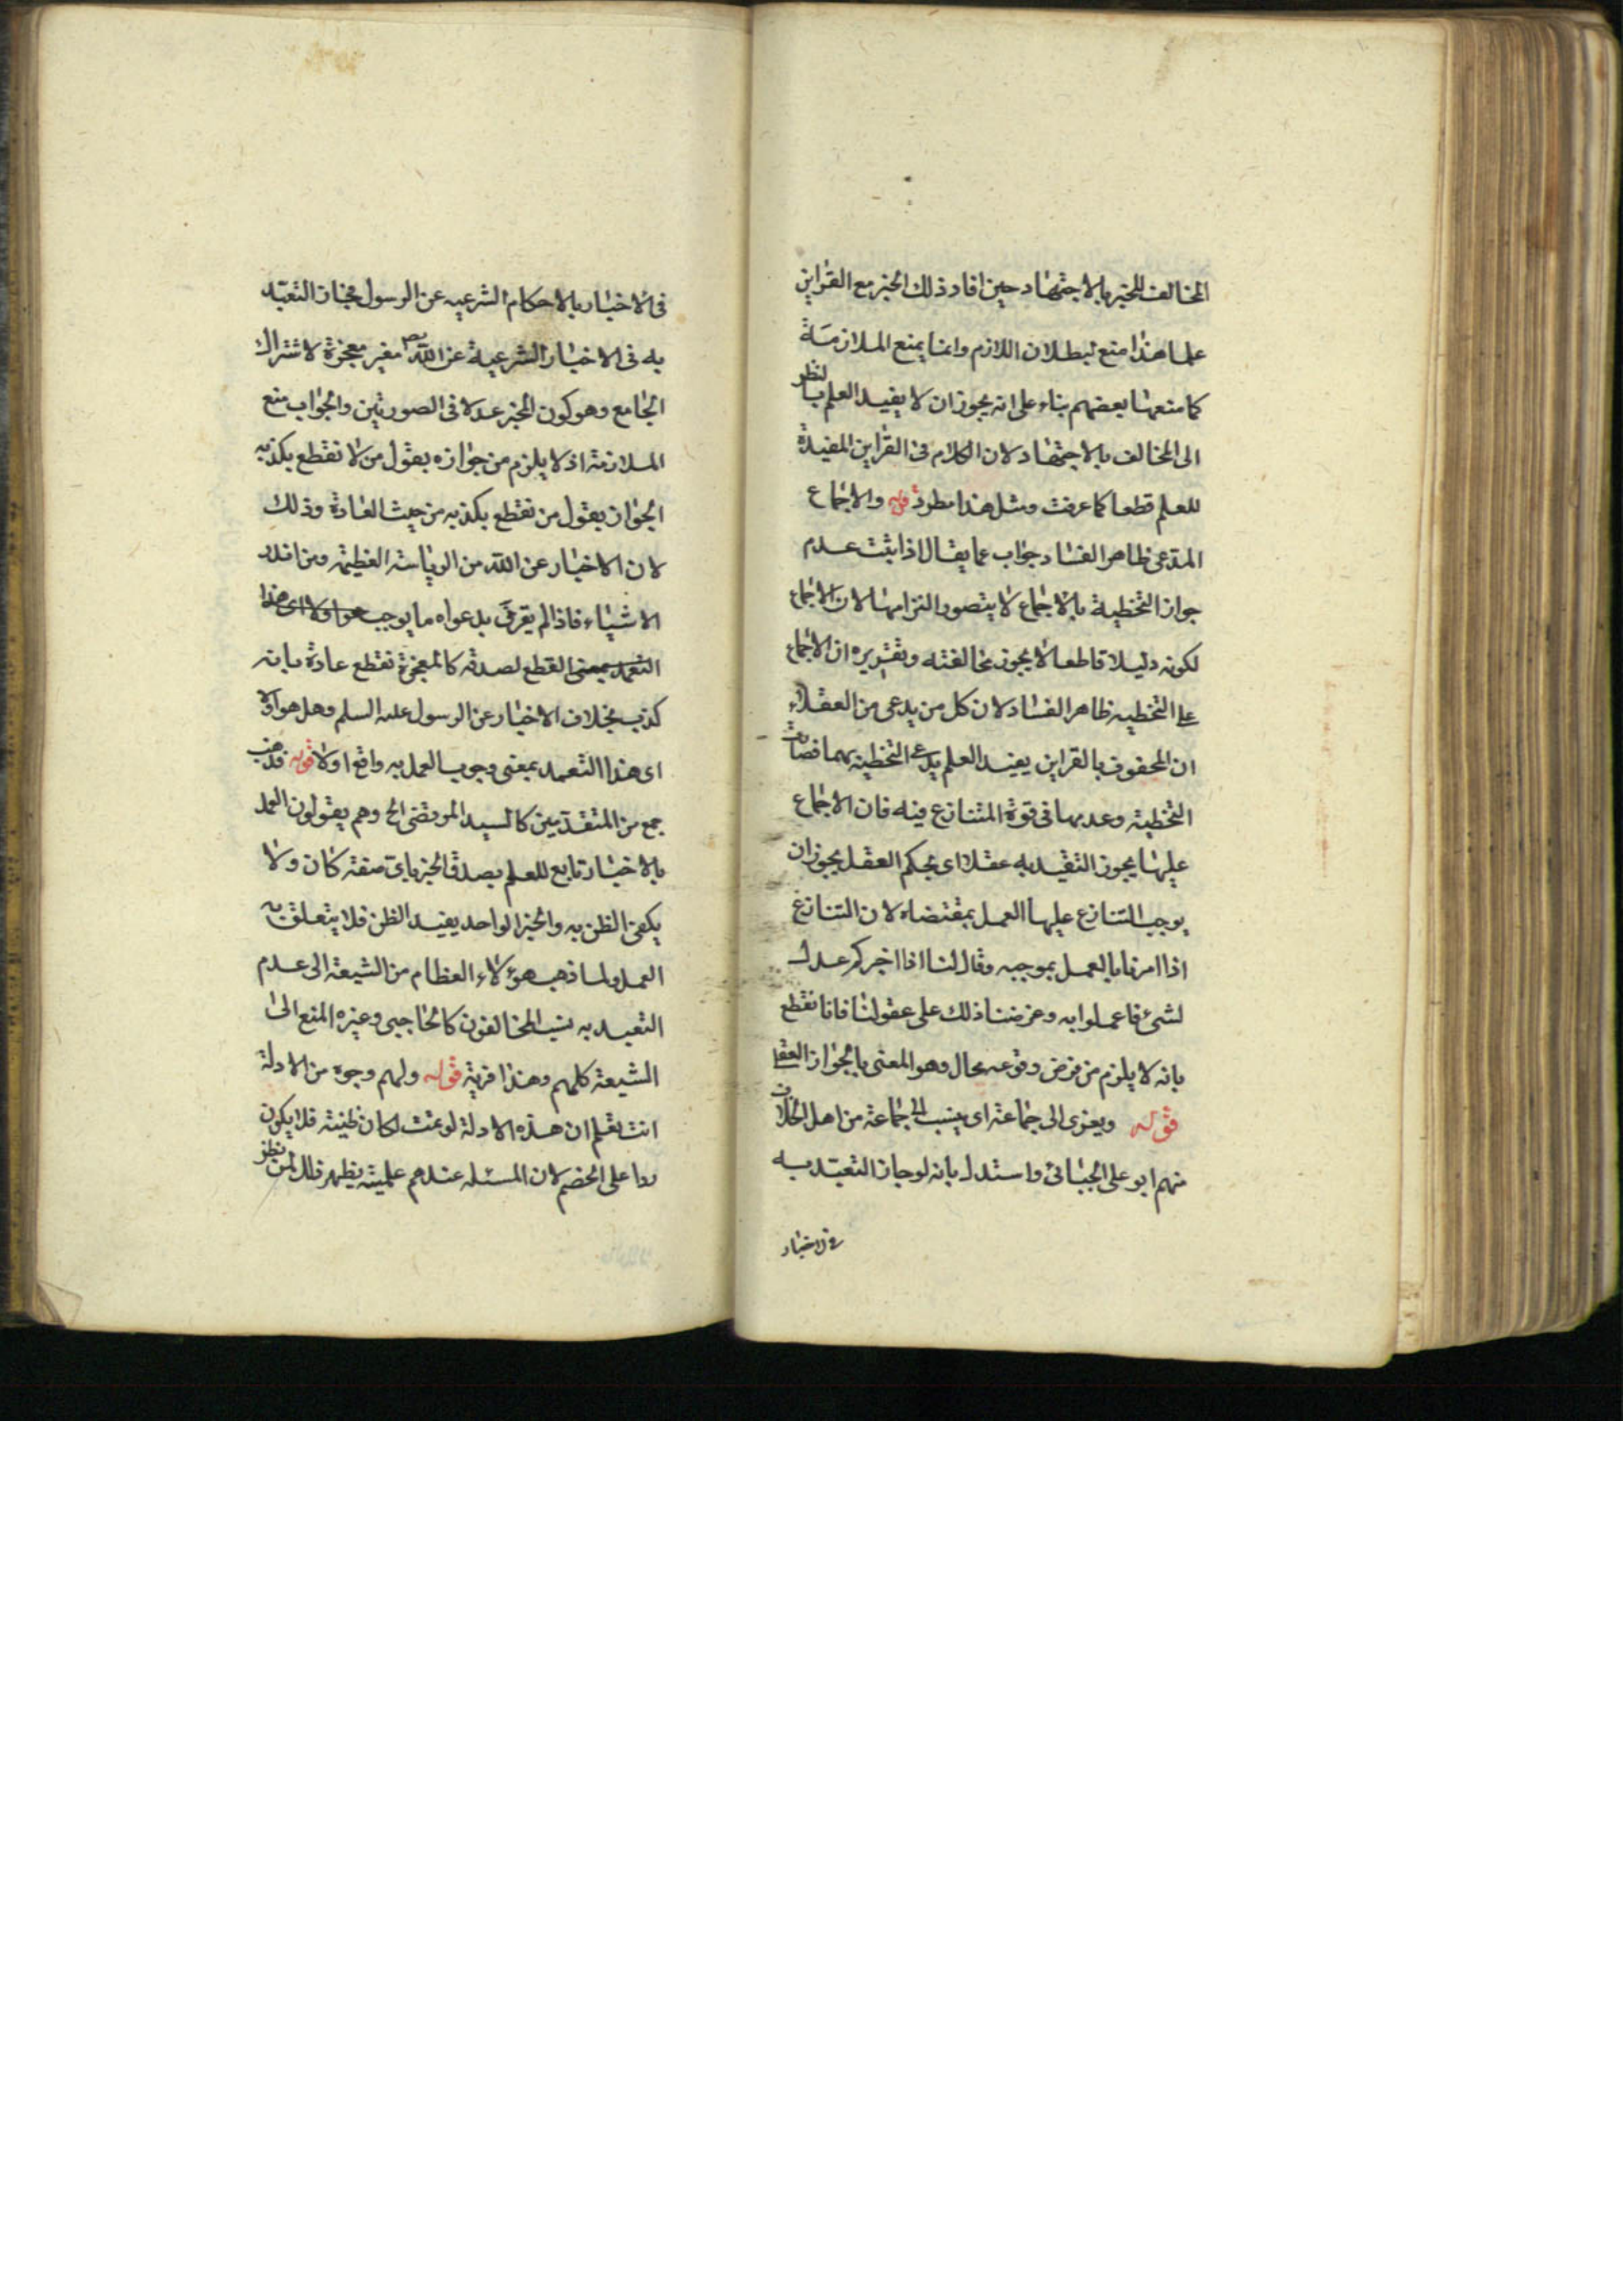 المخالف للخبر بالاجتهاد حين افاد ذلك الخبر مع القراين
علما هذا منع لبطلان اللازم وانما يمنع الملازمة
كما منعها بعضهم بناء على انه يجوز ان لا يفيد العلم بالنظر
الى المخالف بالاجتهاد لان الكلام في القراين المفيدة
للعلم قطعا كما عرفت ومثل هذا مطرد قوله والاجماع
المدعى ظاهر الفساد جواب عما يقال اذا ثبت عدم
جواز التخطية بالاجماع لا يتصور التزامها لان الاجماع
لكونه دليلا قاطعا لا يجوز مخالفته وتقريره ان الاجماع
على التخطيه ظاهر الفساد لان كل من يدعى من العقلاء
ان المحفوف بالقراين يفيد العلم يدعى التخطيه بهما فصارت
التخطية وعدمها في قوة المتنازع فيه فان الاجماع
عليها يجوز التقييد به عقلا اى بحكم العقل يجوز ان
يوجب الشارع علينا العمل بمقتضاه لان الشارع
اذا امرنا بالعمل بموجبه وقال لنا اذا اخبركم عدل
لشئ فاعملوا به وعرضنا ذلك على عقولنا فانا نقطع
بانه لا يلزم من فرض وقوعه محال وهو المعنى بالجواز العقلي
قوله ويعزى الى جماعة اى ينسب الى جماعة من اهل الخلاف
منهم ابو على الجبائى واستدل بانه لو جاز التعبد به
في الاخبار
في الاخبار بالاحكام الشرعيه عن الرسول لجاز التعبد
به في الاخبار الشرعية عن الله بغير معجزة لاشتراك
الجامع وهو كون المخبر عدلا في الصورتين والجواب منع
الملازمة اذ لا يلزم من جوازه بقول من لا نقطع بكذبه
الجواز بقول من نقطع بكذبه من حيث العادة وذلك
لان الاخبار عن الله من الرياسة العظيمة ومن اندر
الاشياء فاذا لم يقرن بدعواه ما يوجب هوا ولا اى هذا
التعبد بمعنى القطع لصدقه كالمعجزة نقطع عادة بانه
كذب بخلاف الاخبار عن الرسول عليه السلم وهل هو اولا
اى هذا التعبد بمعنى وجوب العمل به واقع اولا قوله فذهب
جمع من المتقدمين كالسيد المرتضى الخ وهم يقولون العمل
بالاخبار تابع للعلم بصدق الخبر باى صفة كان ولا
يكفى الظن به والخبر الواحد يفيد الظن فلا يتعلق به
العمل ولما ذهب هؤلاء العظام من الشيعة الى عدم
التعبد به ينسب المخالفون كالحاجبى وغيره المنع الى
الشيعة كلهم وهذا فرية قوله ولهم وجوه من الادلة
انت تعلم ان هذه الادلة لو تمت لكان ظنية فلا يكون
ردا على الخصم لان المسئله عندهم علمية يظهر ذلك لمن نظر